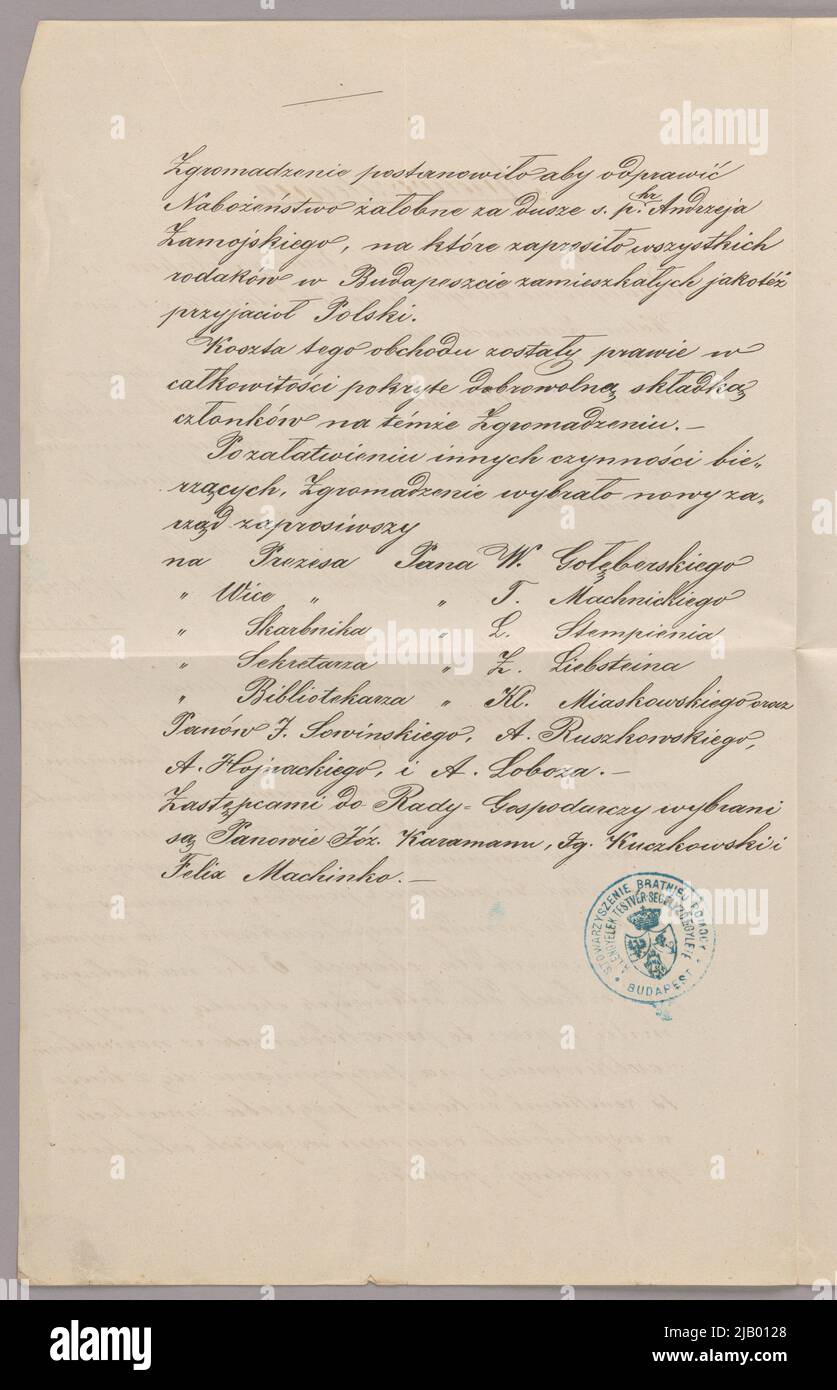 Zgromadzenie postanowiło aby odprawić
Nabożeństwo żałobne za dusze s. p. hr Andrzeja
Zamojskiego, na które zaprosiło wszystkich
rodaków w Budapeszcie zamieszkałych jakotéż
przyjaciół Polski.
Koszta tego obchodu zostały prawie w
całkowitości pokryte dobrowolną składką
członków na témże Zgromadzeniu.—
Po załatwieniu innych czynności bie„
rzących, Zgromadzenie wybrało nowy za„
rząd zaprosiwszy
na Prezesa Pana W. Gołęberskiego
„ Wice „ „ T. Machnickiego
„ Skarbnika „ L. Stempienia
„ Sekretarza „ Z. Liebsteina
„ Bibliotekarza „ Kl. Miaskowskiego oraz
Panów J. Sowinskiego, A. Ruszkowskiego,
A. Hojnackiego, i A. Łoboza.—
Zastępcami do Rady-Gospodarczy wybrani
są Panowie Józ. Karamann, Ig. Kuczkowski i
Felix Machinko.—
STOWARZYSZENIE BRATNIEJ POMOCY
BUDAPEST
alamy
Image ID: 2JB0128
www.alamy.com